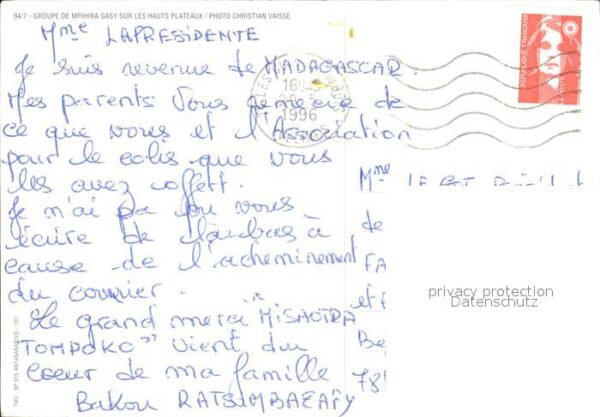 94/7 - GROUPE DE MPIHIRA GASY SUR LES HAUTS PLATEAUX / PHOTO CHRISTIAN VAISSE
Mme LAPRESIDENTE
Je suis revenue de MADAGASCAR.
Mes parents Vous remercie de
ce que vous et l'Association
pour le colis que vous
les avez offert.
Je n'ai pa pu vous
écrire de là-bas à
cause de l'acheminement
du courrier.
Le grand merci "MISAOTRA
TOMPOKO" vient du
coeur de ma famille
Bakou RATSIMBAZAFY
16
1996
REPUBLIQUE FRANÇAISE
Mme
de
FA
et
Be
78
privacy protection
Datenschutz